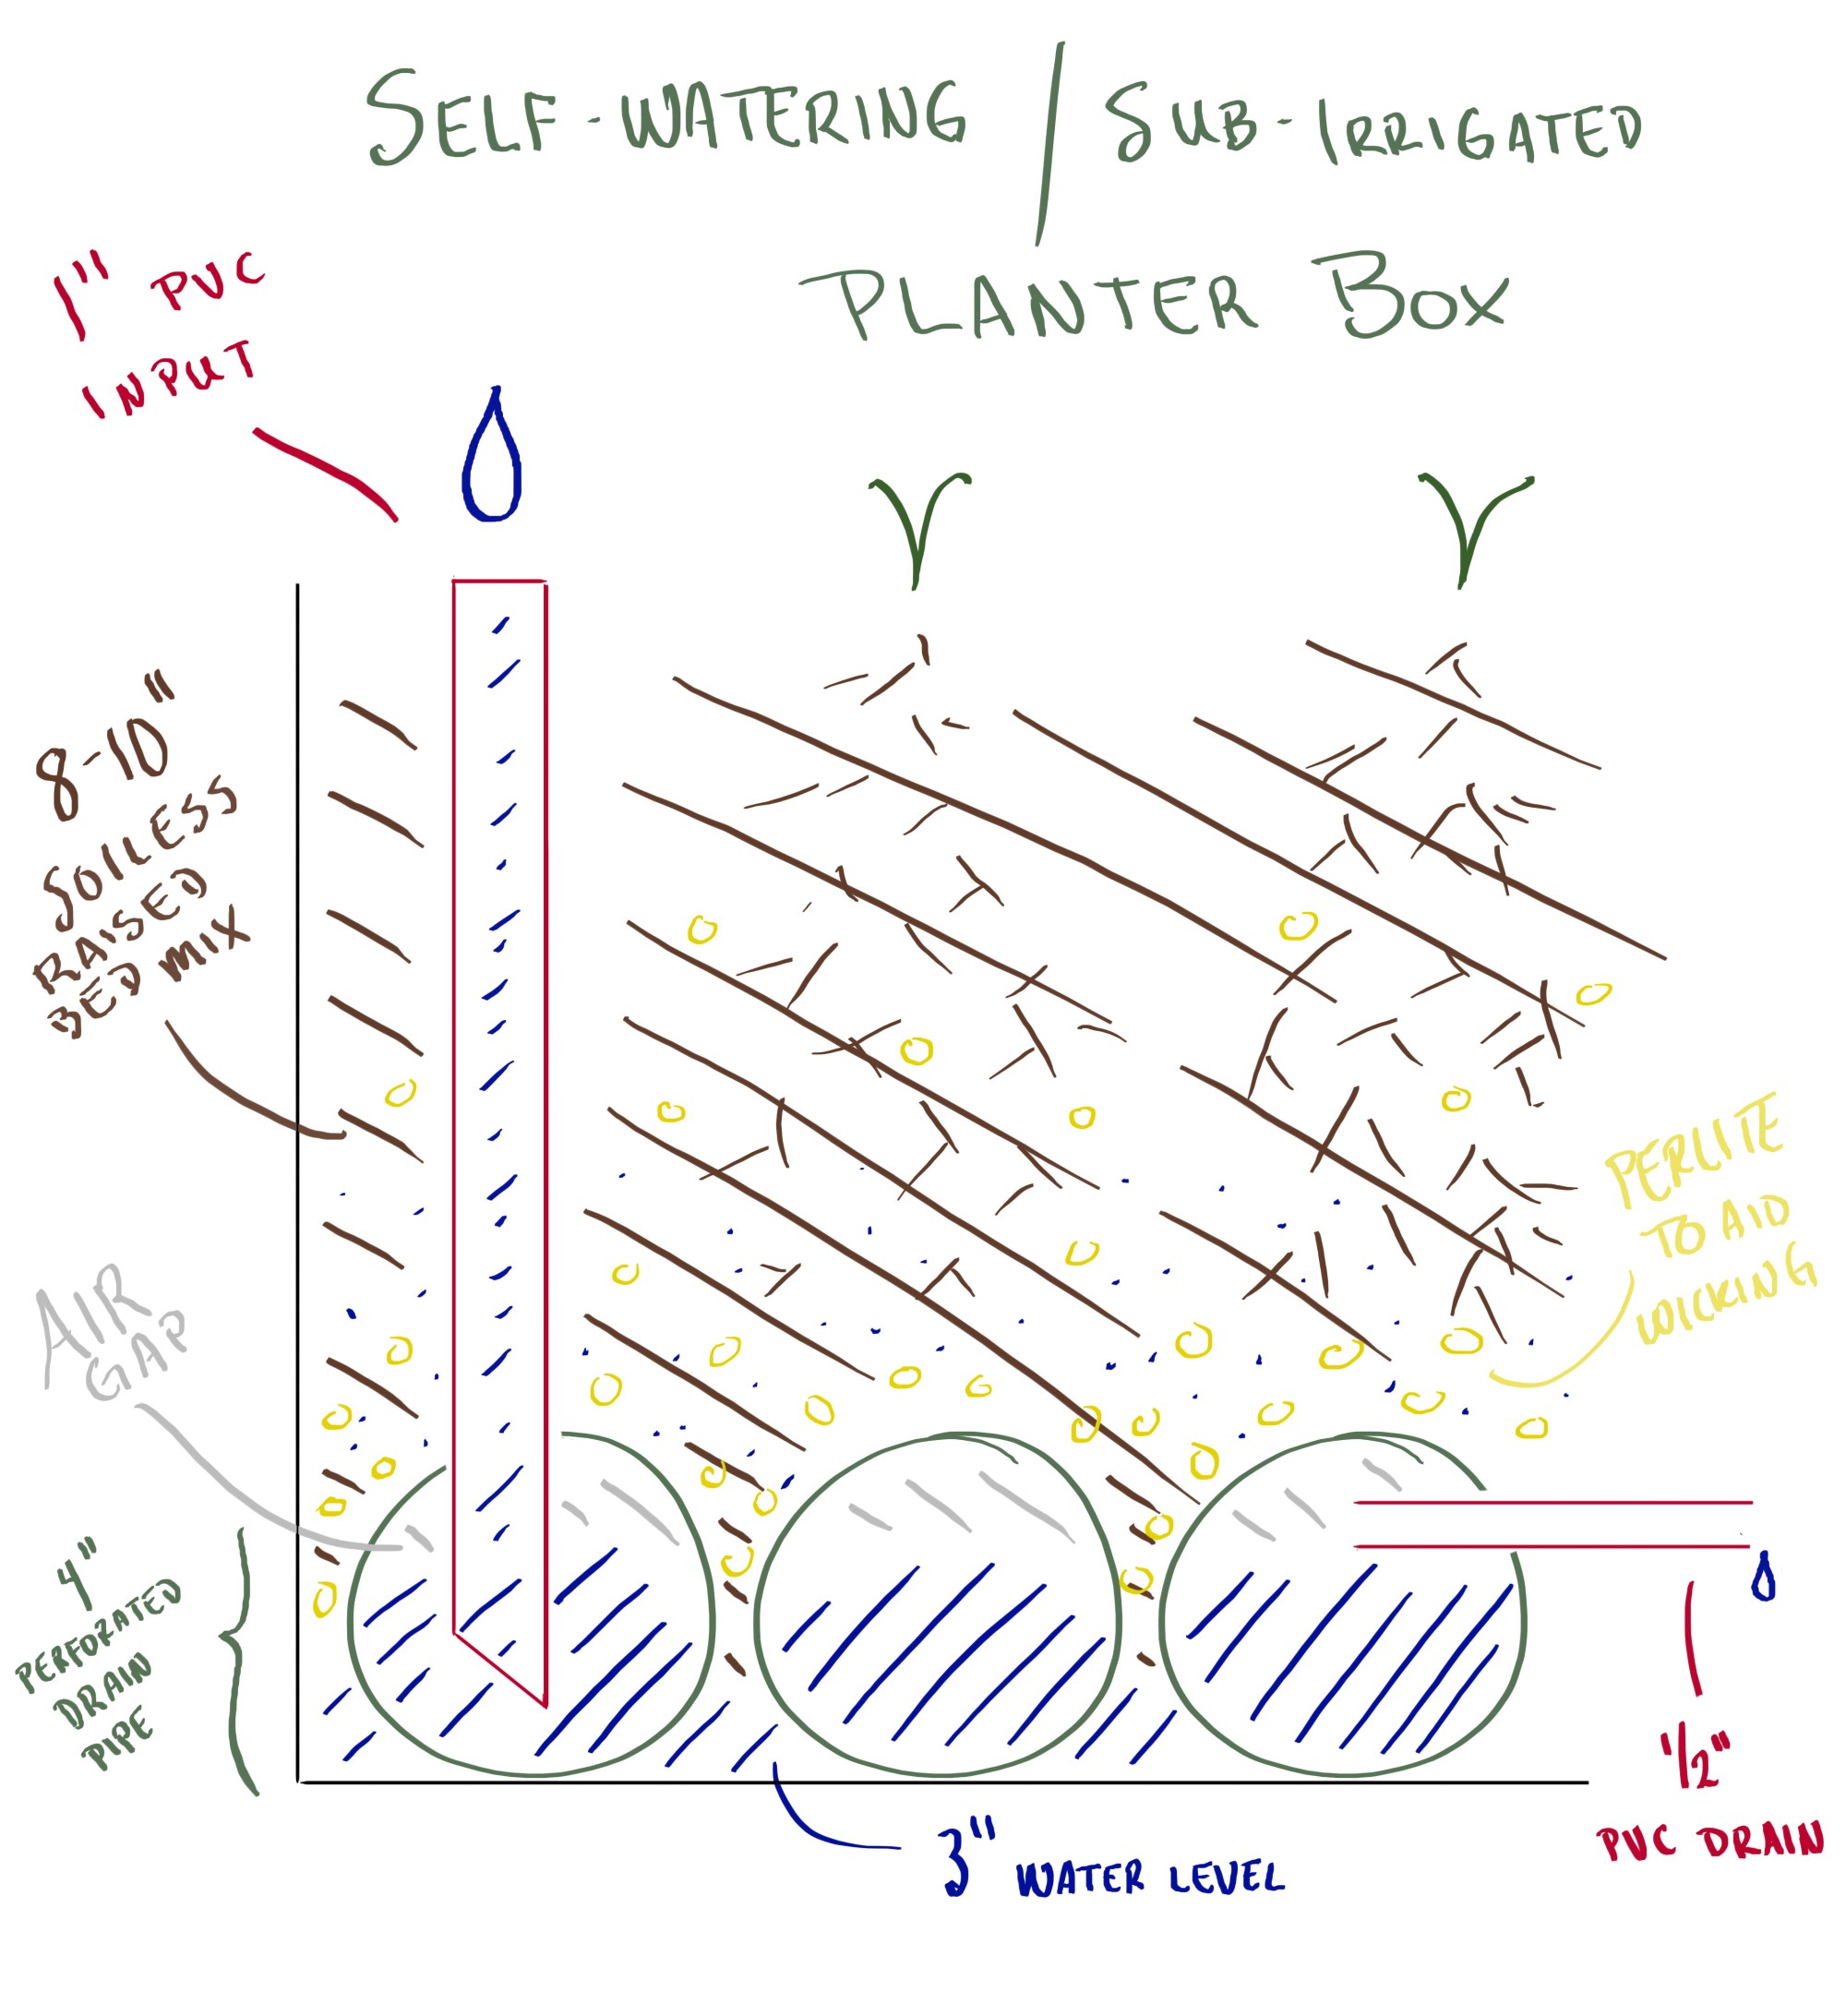 SELF-WATERING / SUB-IRRIGATED
PLANTER BOX
1" PVC
INPUT
8-10"
SOILLESS
RAISED
BED MIX
AIR
GAP
4"
PERFORATED
DRAIN
PIPE
PERLITE
TO AID
WICKING
1/2"
PVC DRAIN
3" WATER LEVEL